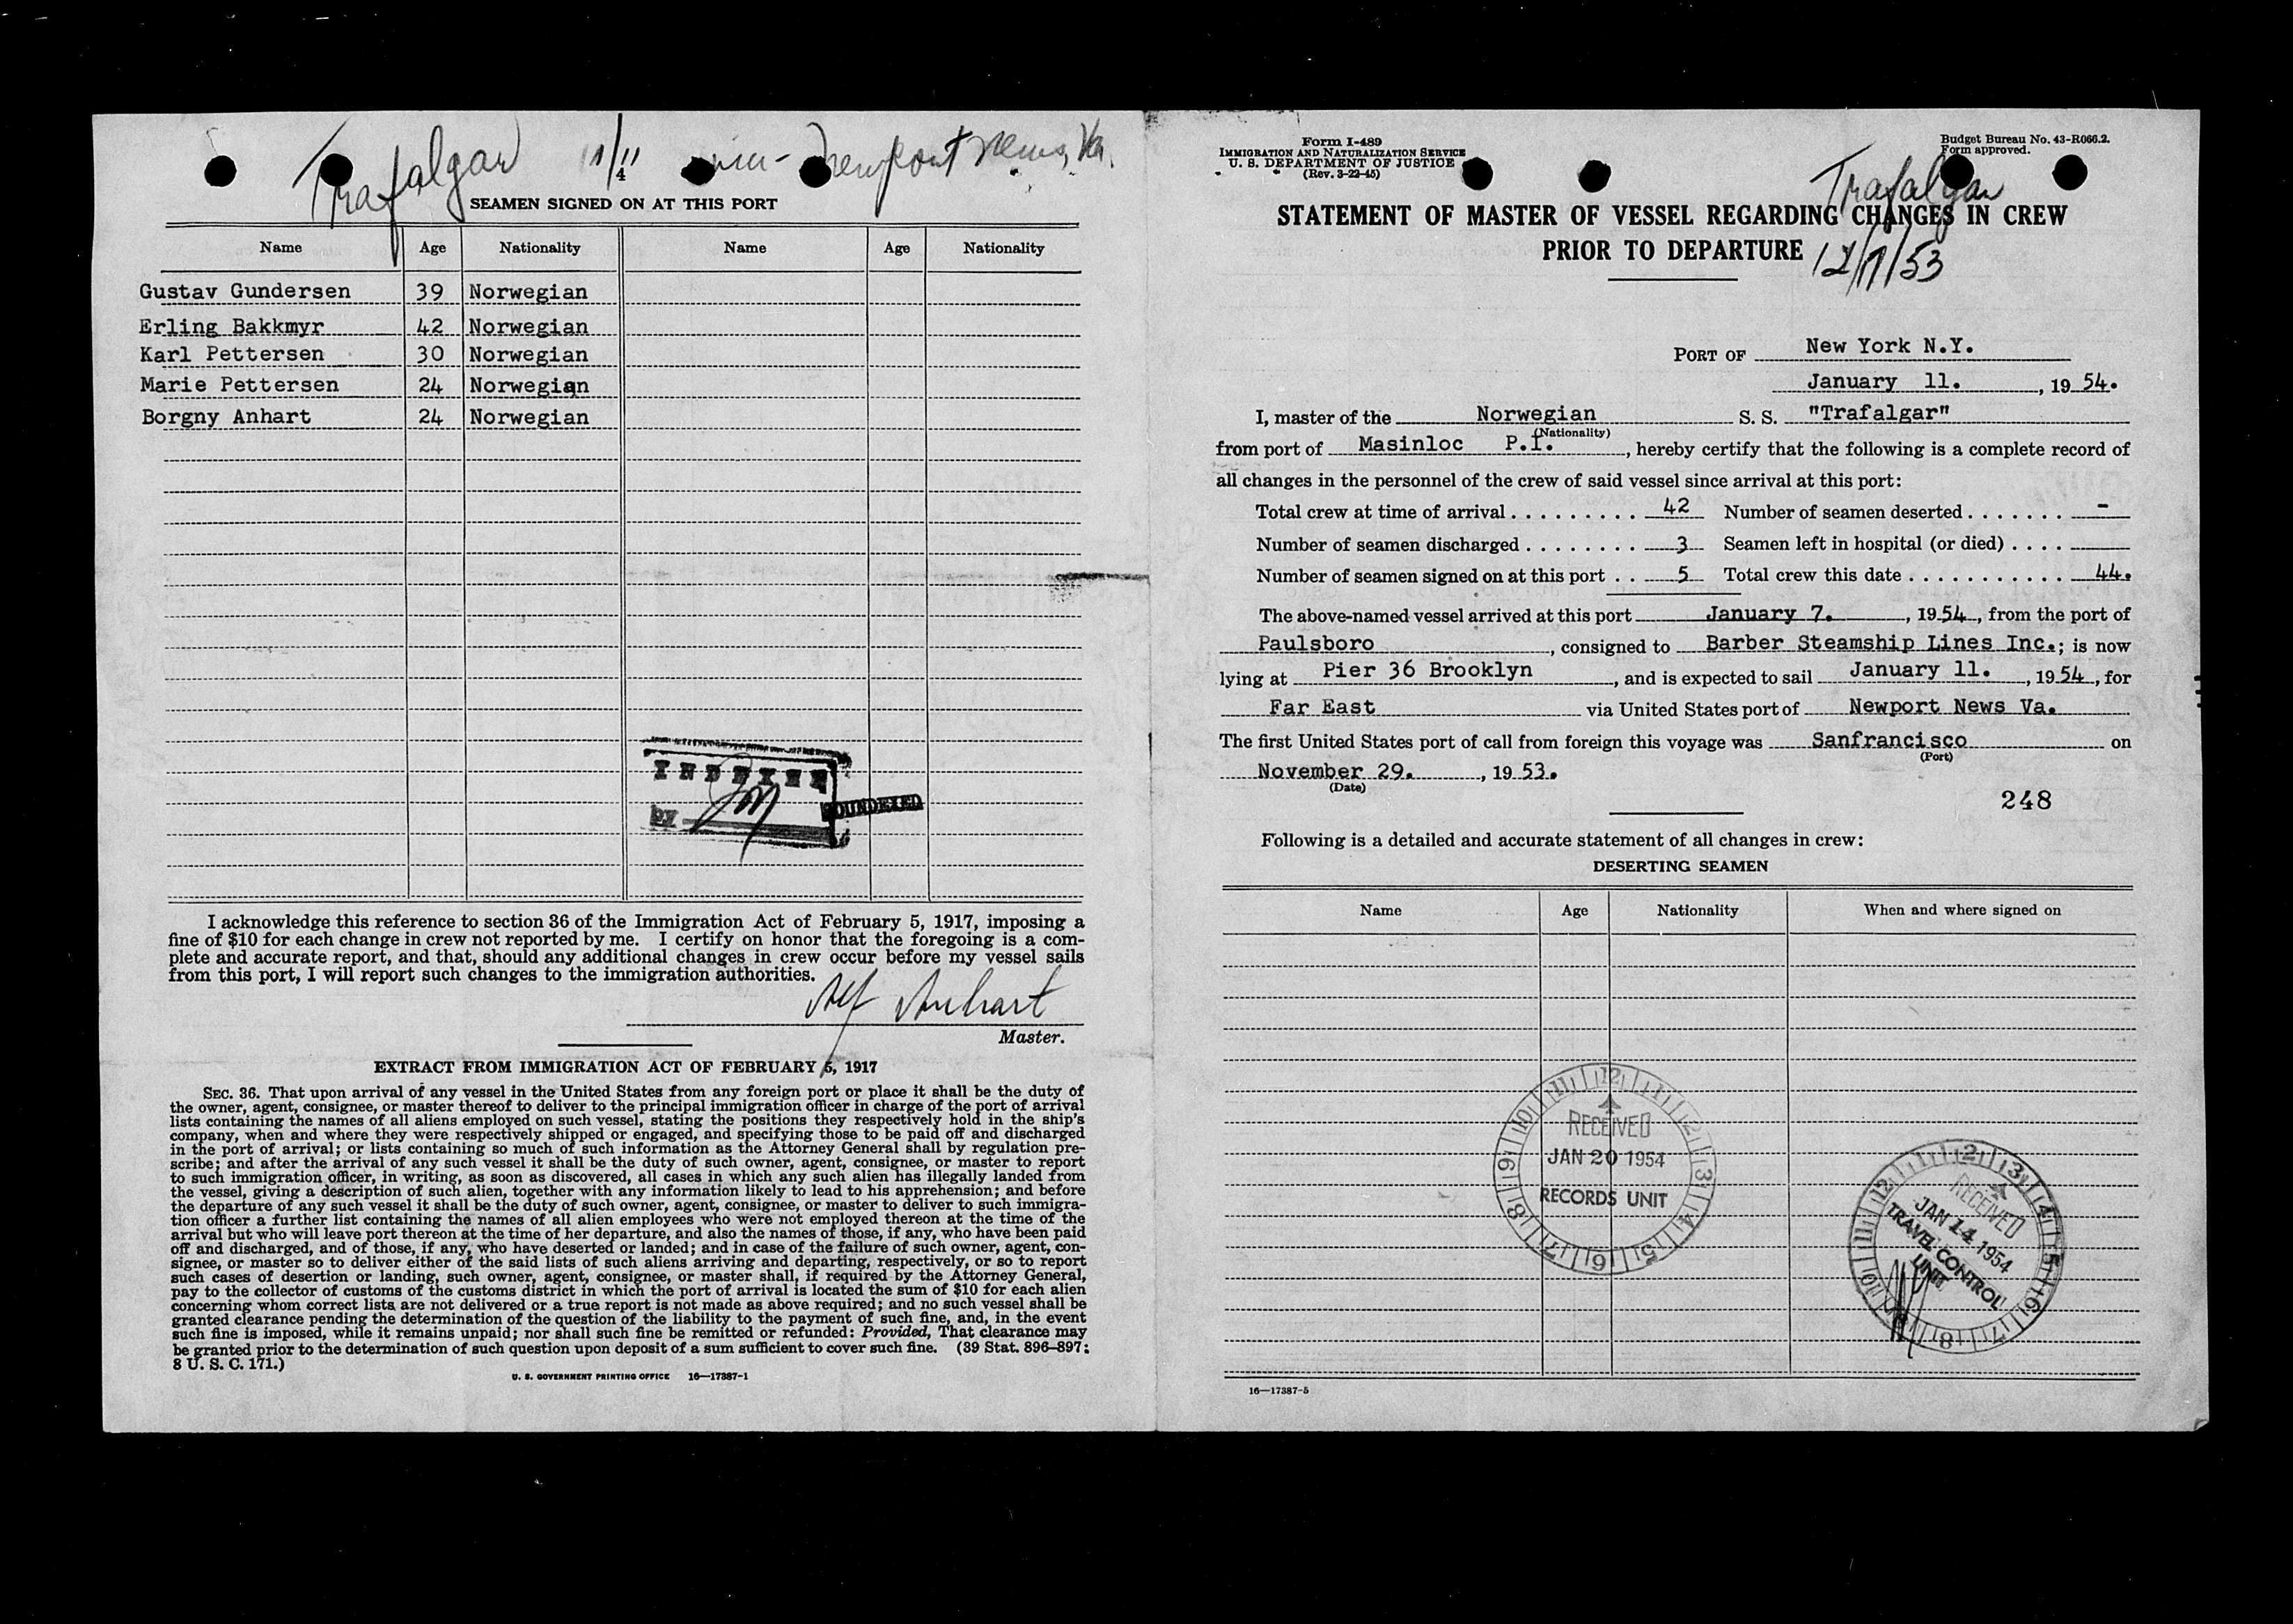 Trafalgar 1/11 4 Newport News, Va.
SEAMEN SIGNED ON AT THIS PORT
Name Age Nationality Name Age Nationality
Gustav Gundersen 39 Norwegian
Erling Bakkmyr 42 Norwegian
Karl Pettersen 30 Norwegian
Marie Pettersen 24 Norwegian
Borgny Anhart 24 Norwegian
INDEXED
BY
SOUNDEXED
I acknowledge this reference to section 36 of the Immigration Act of February 5, 1917, imposing a
fine of $10 for each change in crew not reported by me. I certify on honor that the foregoing is a com-
plete and accurate report, and that, should any additional changes in crew occur before my vessel sails
from this port, I will report such changes to the immigration authorities.
Alf Anhart
Master.
EXTRACT FROM IMMIGRATION ACT OF FEBRUARY 5, 1917
SEC. 36. That upon arrival of any vessel in the United States from any foreign port or place it shall be the duty of
the owner, agent, consignee, or master thereof to deliver to the principal immigration officer in charge of the port of arrival
lists containing the names of all aliens employed on such vessel, stating the positions they respectively hold in the ship's
company, when and where they were respectively shipped or engaged, and specifying those to be paid off and discharged
in the port of arrival; or lists containing so much of such information as the Attorney General shall by regulation pre-
scribe; and after the arrival of any such vessel it shall be the duty of such owner, agent, consignee, or master to report
to such immigration officer, in writing, as soon as discovered, all cases in which any such alien has illegally landed from
the vessel, giving a description of such alien, together with any information likely to lead to his apprehension; and before
the departure of any such vessel it shall be the duty of such owner, agent, consignee, or master to deliver to such immigra-
tion officer a further list containing the names of all alien employees who were not employed thereon at the time of the
arrival but who will leave port thereon at the time of her departure, and also the names of those, if any, who have been paid
off and discharged, and of those, if any, who have deserted or landed; and in case of the failure of such owner, agent, con-
signee, or master so to deliver either of the said lists of such aliens arriving and departing, respectively, or so to report
such cases of desertion or landing, such owner, agent, consignee, or master shall, if required by the Attorney General,
pay to the collector of customs of the customs district in which the port of arrival is located the sum of $10 for each alien
concerning whom correct lists are not delivered or a true report is not made as above required; and no such vessel shall be
granted clearance pending the determination of the question of the liability to the payment of such fine, and, in the event
such fine is imposed, while it remains unpaid; nor shall such fine be remitted or refunded: Provided, That clearance may
be granted prior to the determination of such question upon deposit of a sum sufficient to cover such fine. (39 Stat. 896–897;
8 U. S. C. 171.)
U. S. GOVERNMENT PRINTING OFFICE 16—17387-1
Form I-489
IMMIGRATION AND NATURALIZATION SERVICE
U. S. DEPARTMENT OF JUSTICE
(Rev. 3-22-45)
Budget Bureau No. 43-R066.2.
Form approved.
Trafalgar
STATEMENT OF MASTER OF VESSEL REGARDING CHANGES IN CREW
PRIOR TO DEPARTURE
PORT OF New York N.Y.
January 11. , 19 54.
I, master of the Norwegian S. S. "Trafalgar"
(Nationality)
from port of Masinloc P.I. , hereby certify that the following is a complete record of
all changes in the personnel of the crew of said vessel since arrival at this port:
Total crew at time of arrival . . . . . . . . . 42 Number of seamen deserted . . . . . . . -
Number of seamen discharged . . . . . . . . 3 Seamen left in hospital (or died) . . . .
Number of seamen signed on at this port . . 5 Total crew this date . . . . . . . . . . . 44.
The above-named vessel arrived at this port January 7. , 19 54 , from the port of
Paulsboro , consigned to Barber Steamship Lines Inc.; is now
lying at Pier 36 Brooklyn , and is expected to sail January 11. , 19 54 , for
Far East via United States port of Newport News Va.
The first United States port of call from foreign this voyage was Sanfrancisco on
(Port)
November 29. , 19 53.
(Date)
248
Following is a detailed and accurate statement of all changes in crew:
DESERTING SEAMEN
Name Age Nationality When and where signed on
RECEIVED
JAN 20 1954
RECORDS UNIT
RECEIVED
JAN 14 1954
TRAVEL CONTROL
UNIT
16—17387-5